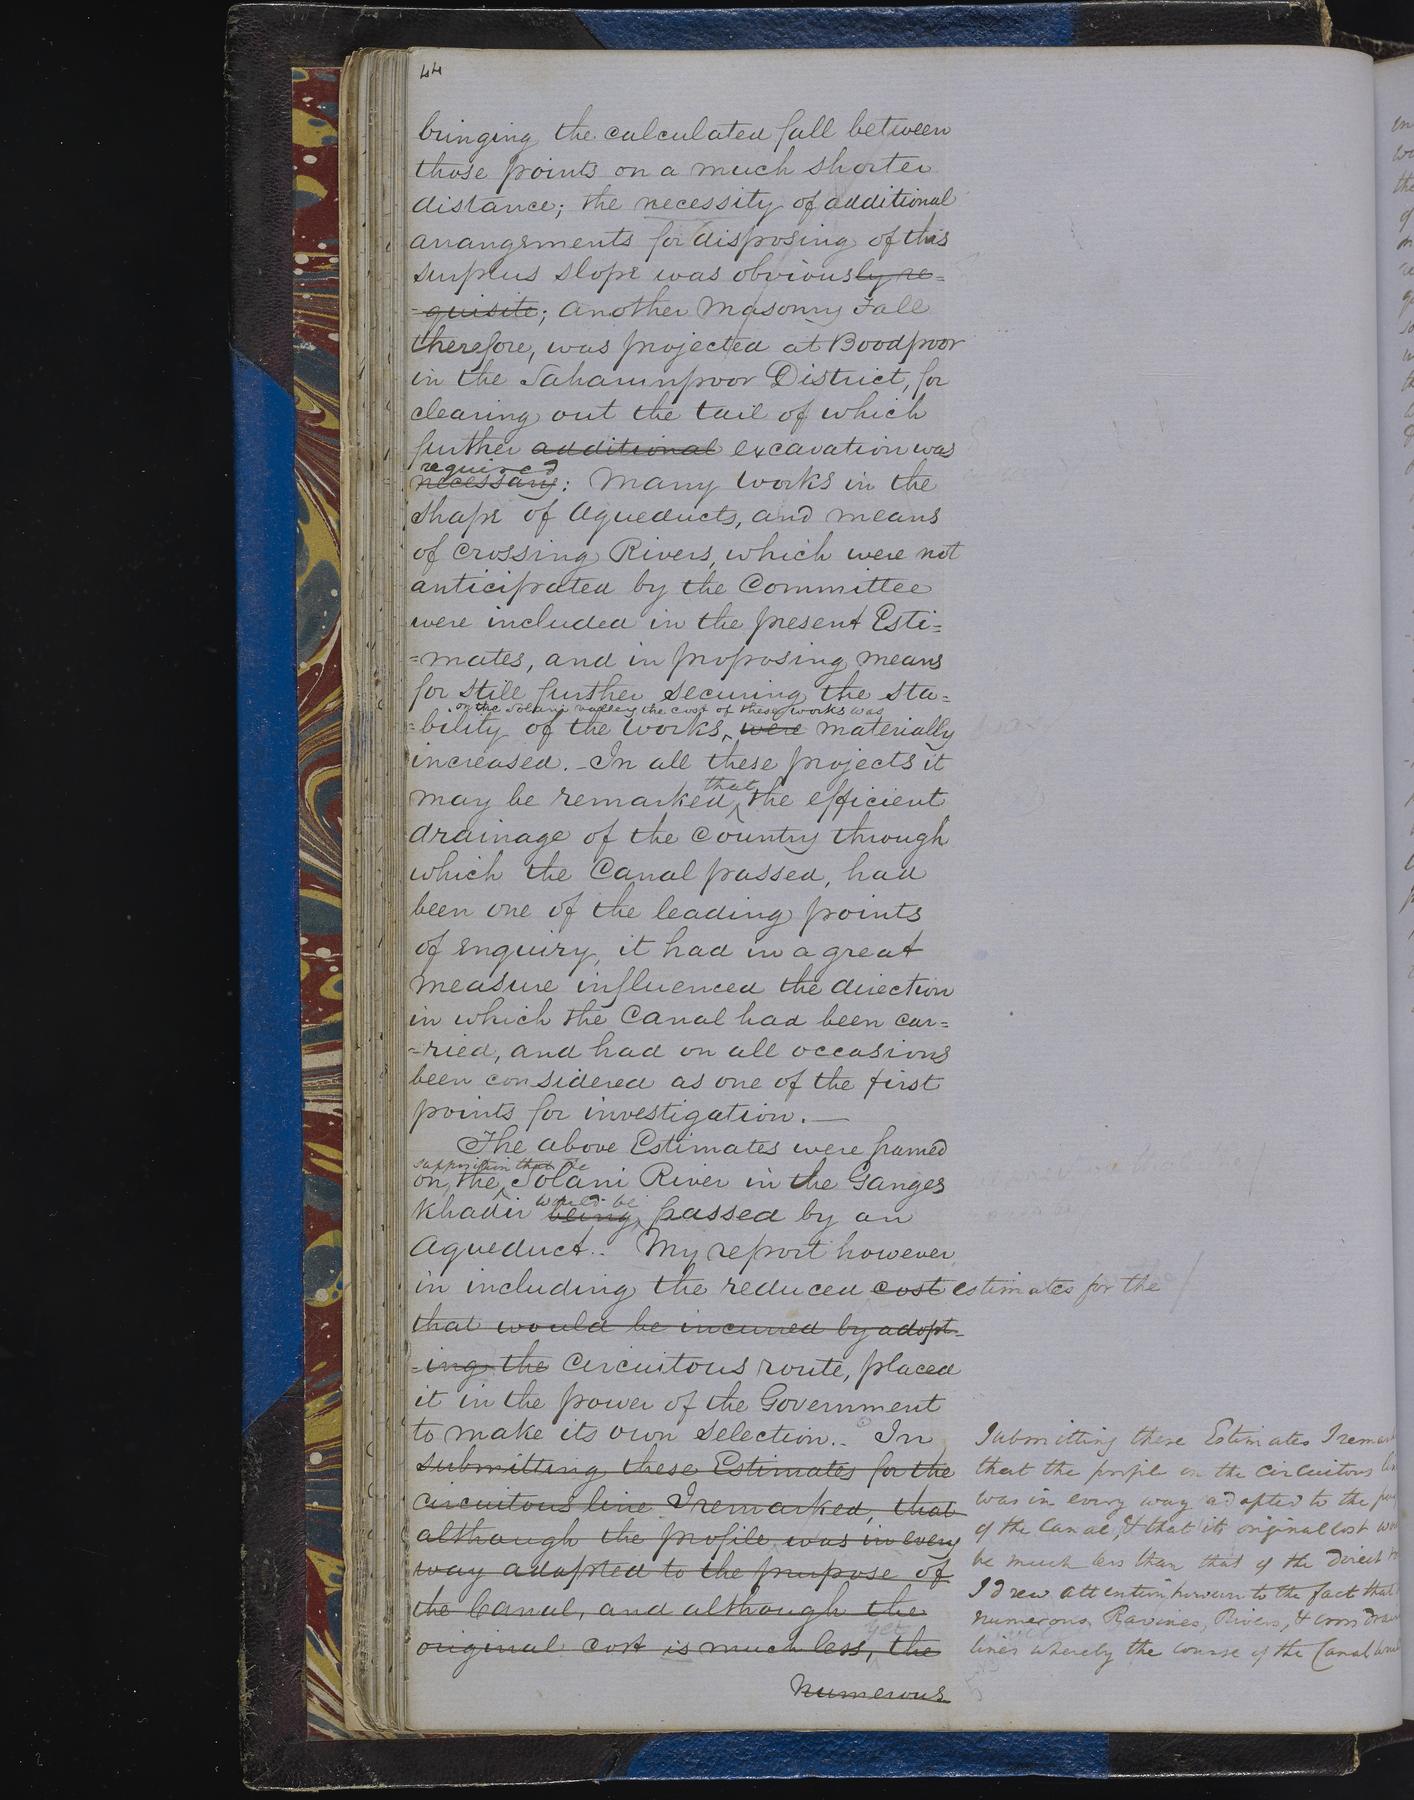 44
bringing the calculated fall between
those points on a much shorter
distance; the necessity of additional
arrangements for disposing of this
surplus slope was obviously re=
=quisite; another Masonry Fall
therefore, was projected at Boodpoor
in the Saharunpoor District, for
clearing out the tail of which
further additional excavation was
required
necessary: Many works in the
shape of Aqueducts, and means
of crossing Rivers, which were not
anticipated by the Committee
were included in the present Esti=
=mates, and in proposing means
for still further securing the sta=
on the Solani valley the cost of these works was
=bility of the works, were materially
increased. _ In all these projects it
that
may be remarked the efficient
drainage of the Country through
which the Canal passed, had
been one of the leading points
of enquiry, it had in a great
measure influenced the direction
in which the Canal had been car=
=ried, and had on all occasions
been considered as one of the first
points for investigation. —
The above Estimates were framed
supposition that the
on the Solani River in the Ganges
would be
Khadir being passed by an
Aqueduct.. My report however
in including the reduced cost estimates for the
that would be incurred by adopt=
=ing the circuitous route, placed
it in the power of the Government
to make its own selection.. In
submitting these Estimates for the
circuitous line I remarked, that
although the profile was in every
way adapted to the purpose of
the Canal, and although the
yet
original cost is much less, the
numerous
Submitting these Estimates I remark
that the profile on the circuitous
was in every way adapted to the
of the Canal, & that its original cost
be much less than that of the direct
I drew attention however to the fact that
numerous Ravines, Rivers, & cross
lines whereby the course of the Canal